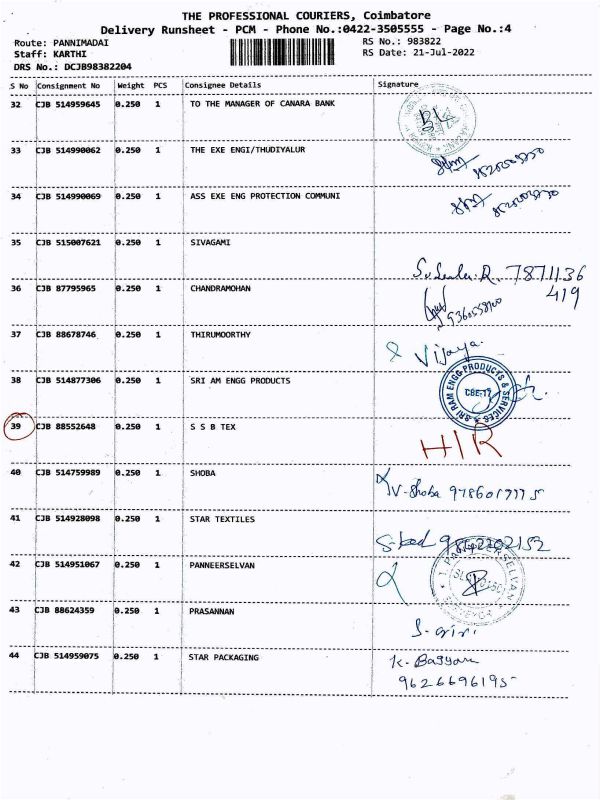 THE PROFESSIONAL COURIERS, Coimbatore
Delivery Runsheet - PCM - Phone No.:0422-3505555 - Page No.:4
Route: PANNIMADAI RS No.: 983822
Staff: KARTHI RS Date: 21-Jul-2022
DRS No.: DCJB98382204
S No Consignment No Weight PCS Consignee Details Signature
32 CJB 514959645 0.250 1 TO THE MANAGER OF CANARA BANK
33 CJB 514990062 0.250 1 THE EXE ENGI/THUDIYALUR
34 CJB 514990069 0.250 1 ASS EXE ENG PROTECTION COMMUNI
35 CJB 515007621 0.250 1 SIVAGAMI
7871136
419
36 CJB 87795965 0.250 1 CHANDRAMOHAN
37 CJB 88678746 0.250 1 THIRUMOORTHY
Vijaya
38 CJB 514877306 0.250 1 SRI AM ENGG PRODUCTS
SRI RAM ENGG PRODUCTS & SERVICES
CBE-17
39 CJB 88552648 0.250 1 S S B TEX
H/R
40 CJB 514759989 0.250 1 SHOBA
V-Shoba
41 CJB 514928098 0.250 1 STAR TEXTILES
42 CJB 514951067 0.250 1 PANNEERSELVAN
43 CJB 88624359 0.250 1 PRASANNAN
S-giri.
44 CJB 514959075 0.250 1 STAR PACKAGING
9626696195